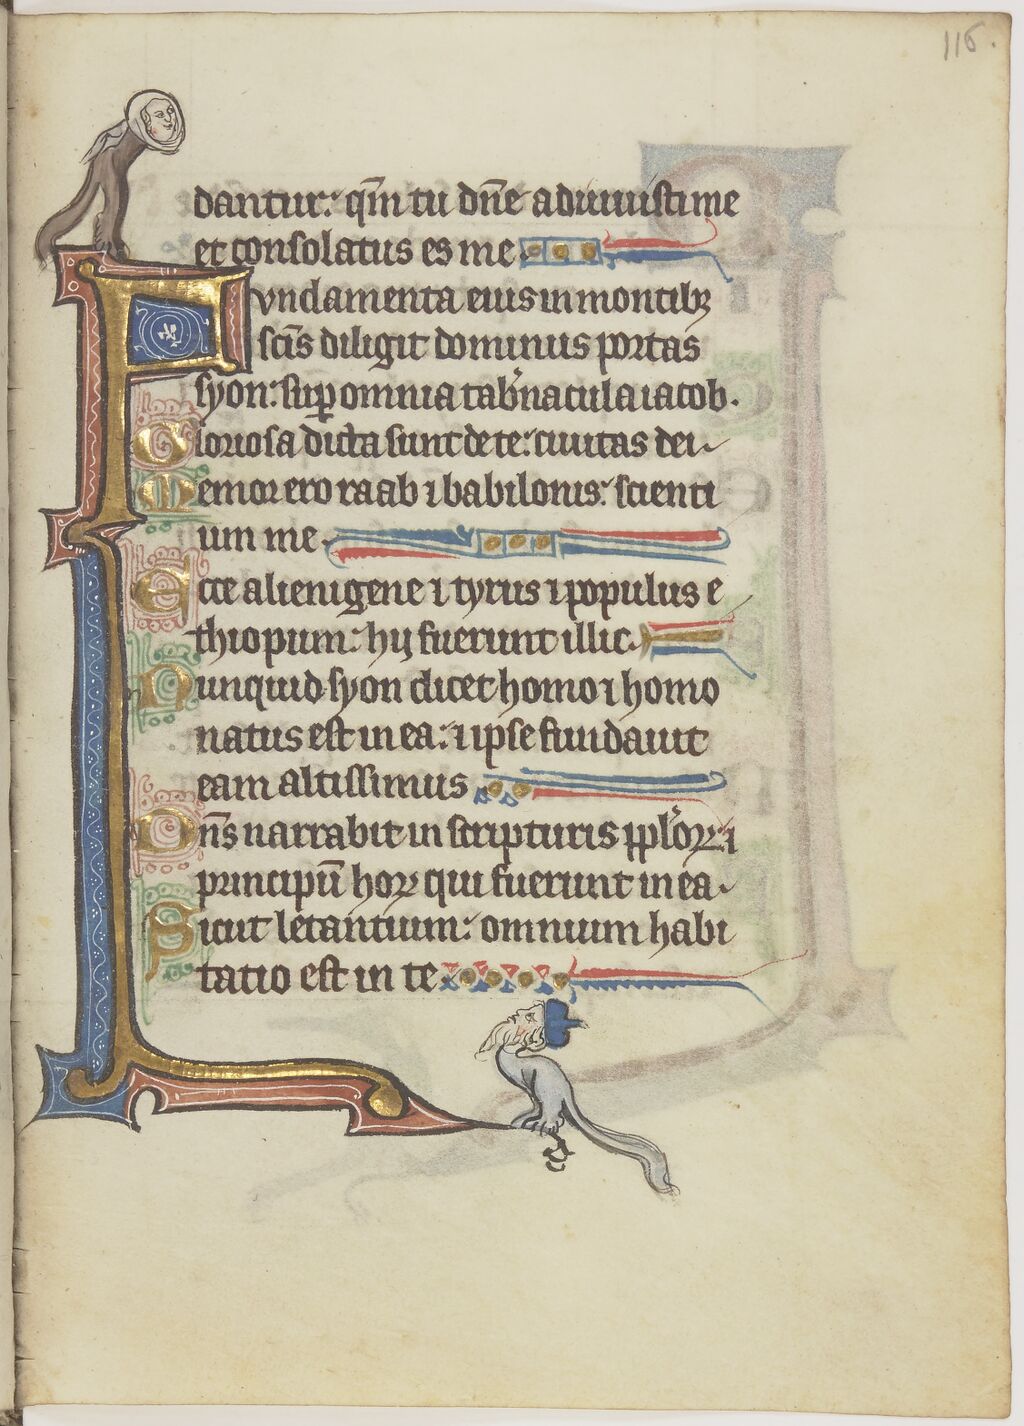 116.
dantur: qm̄ tu dn̄e adiuuisti me
et consolatus es me
Fundamenta eius in montibꝫ
sc̄is diligit dominus portas
syon: suꝑ omnia tab̾nacula iacob.
Gloriosa dicta sunt de te: ciuitas dei
Memor ero raab ⁊ babilonis: scienti
um me
Ecce alienigene ⁊ tyrus ⁊ populus e
thiopum: hij fuerunt illic
Nunquid syon dicet homo ⁊ homo
natus est in ea: ⁊ ipse fundauit
eam altissimus
Dn̄s narrabit in scripturis ppl̾oꝝ ⁊
principū hoꝝ qui fuerunt in ea
Sicut letantium: omnium habi
tatio est in te